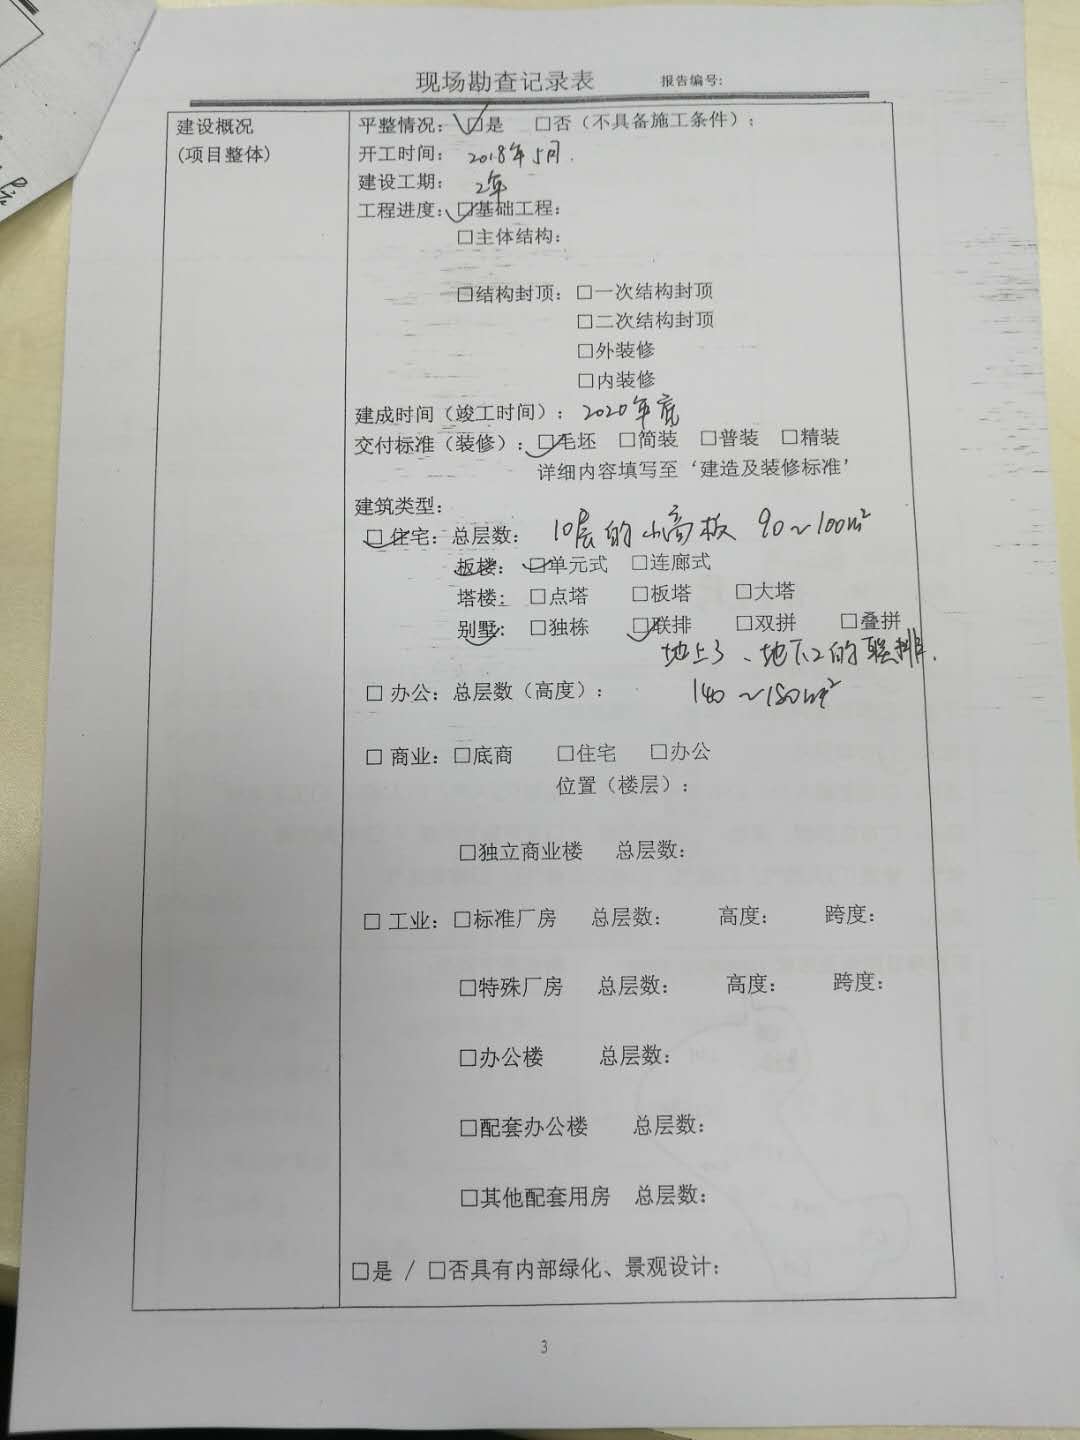 现场勘查记录表 报告编号:
建设概况
(项目整体)
平整情况: ☑是 □否(不具备施工条件):
开工时间: 2018年5月.
建设工期: 2年
工程进度: ☑基础工程:
□主体结构:
□结构封顶: □一次结构封顶
□二次结构封顶
□外装修
□内装修
建成时间(竣工时间): 2020年底
交付标准(装修): ☑毛坯 □简装 □普装 □精装
详细内容填写至‘建造及装修标准’
建筑类型:
☑住宅: 总层数: 10层的小高板 90~100m²
板楼: ☑单元式 □连廊式
塔楼: □点塔 □板塔 □大塔
别墅: □独栋 ☑联排 □双拼 □叠拼
地上3、地下2的联排.
□ 办公: 总层数(高度): 140~180m²
□ 商业: □底商 □住宅 □办公
位置(楼层):
□独立商业楼 总层数:
□ 工业: □标准厂房 总层数: 高度: 跨度:
□特殊厂房 总层数: 高度: 跨度:
□办公楼 总层数:
□配套办公楼 总层数:
□其他配套用房 总层数:
□是 / □否具有内部绿化、景观设计:
3